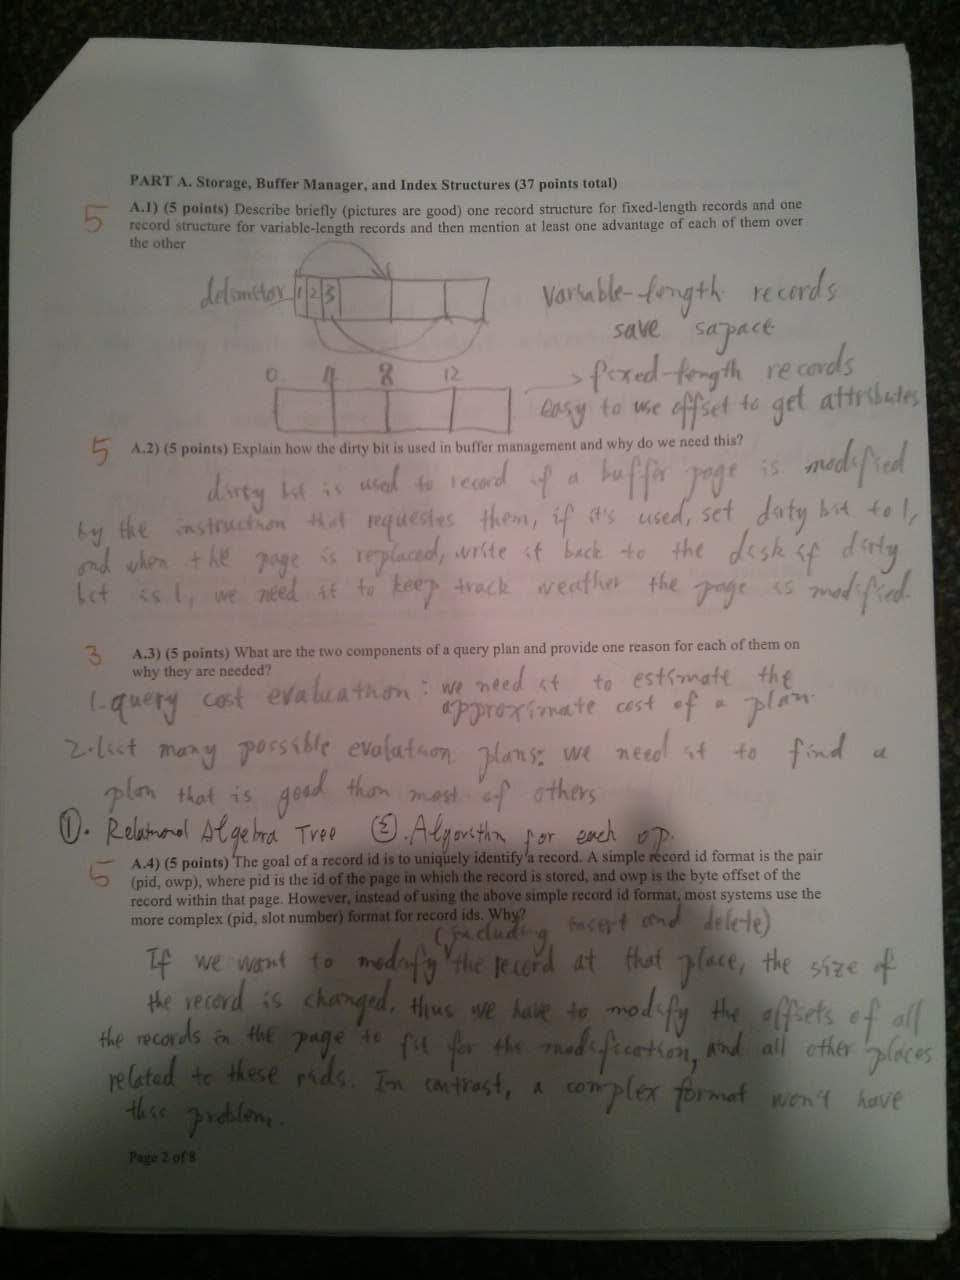 PART A. Storage, Buffer Manager, and Index Structures (37 points total)
5
A.1) (5 points) Describe briefly (pictures are good) one record structure for fixed-length records and one
record structure for variable-length records and then mention at least one advantage of each of them over
the other
delimitor 1 2 3
Variable-length records
save sapace
0 4 8 12
fixed-length records
easy to use offset to get attributes
5
A.2) (5 points) Explain how the dirty bit is used in buffer management and why do we need this?
dirty bit is used to record if a buffer page is modified
by the instruction that requestes them, if it's used, set dirty bit to 1,
and when the page is replaced, write it back to the disk if dirty
bit is 1, we need it to keep track weather the page is modified.
3
A.3) (5 points) What are the two components of a query plan and provide one reason for each of them on
why they are needed?
1. query cost evaluathon: we need it to estimate the
approximate cost of a plan.
2. list many possible evalutaion plans: we need it to find a
plan that is good than most of others
①. Relational Algebra Tree ②. Algorithm for each op.
5
A.4) (5 points) The goal of a record id is to uniquely identify a record. A simple record id format is the pair
(pid, owp), where pid is the id of the page in which the record is stored, and owp is the byte offset of the
record within that page. However, instead of using the above simple record id format, most systems use the
more complex (pid, slot number) format for record ids. Why?
(including insert and delete)
If we want to modify the record at that place, the size of
the record is changed, thus we have to modify the offsets of all
the records in the page to fit for the modification, and all other places
related to these rids. In contrast, a complex format won't have
this problem.
Page 2 of 8